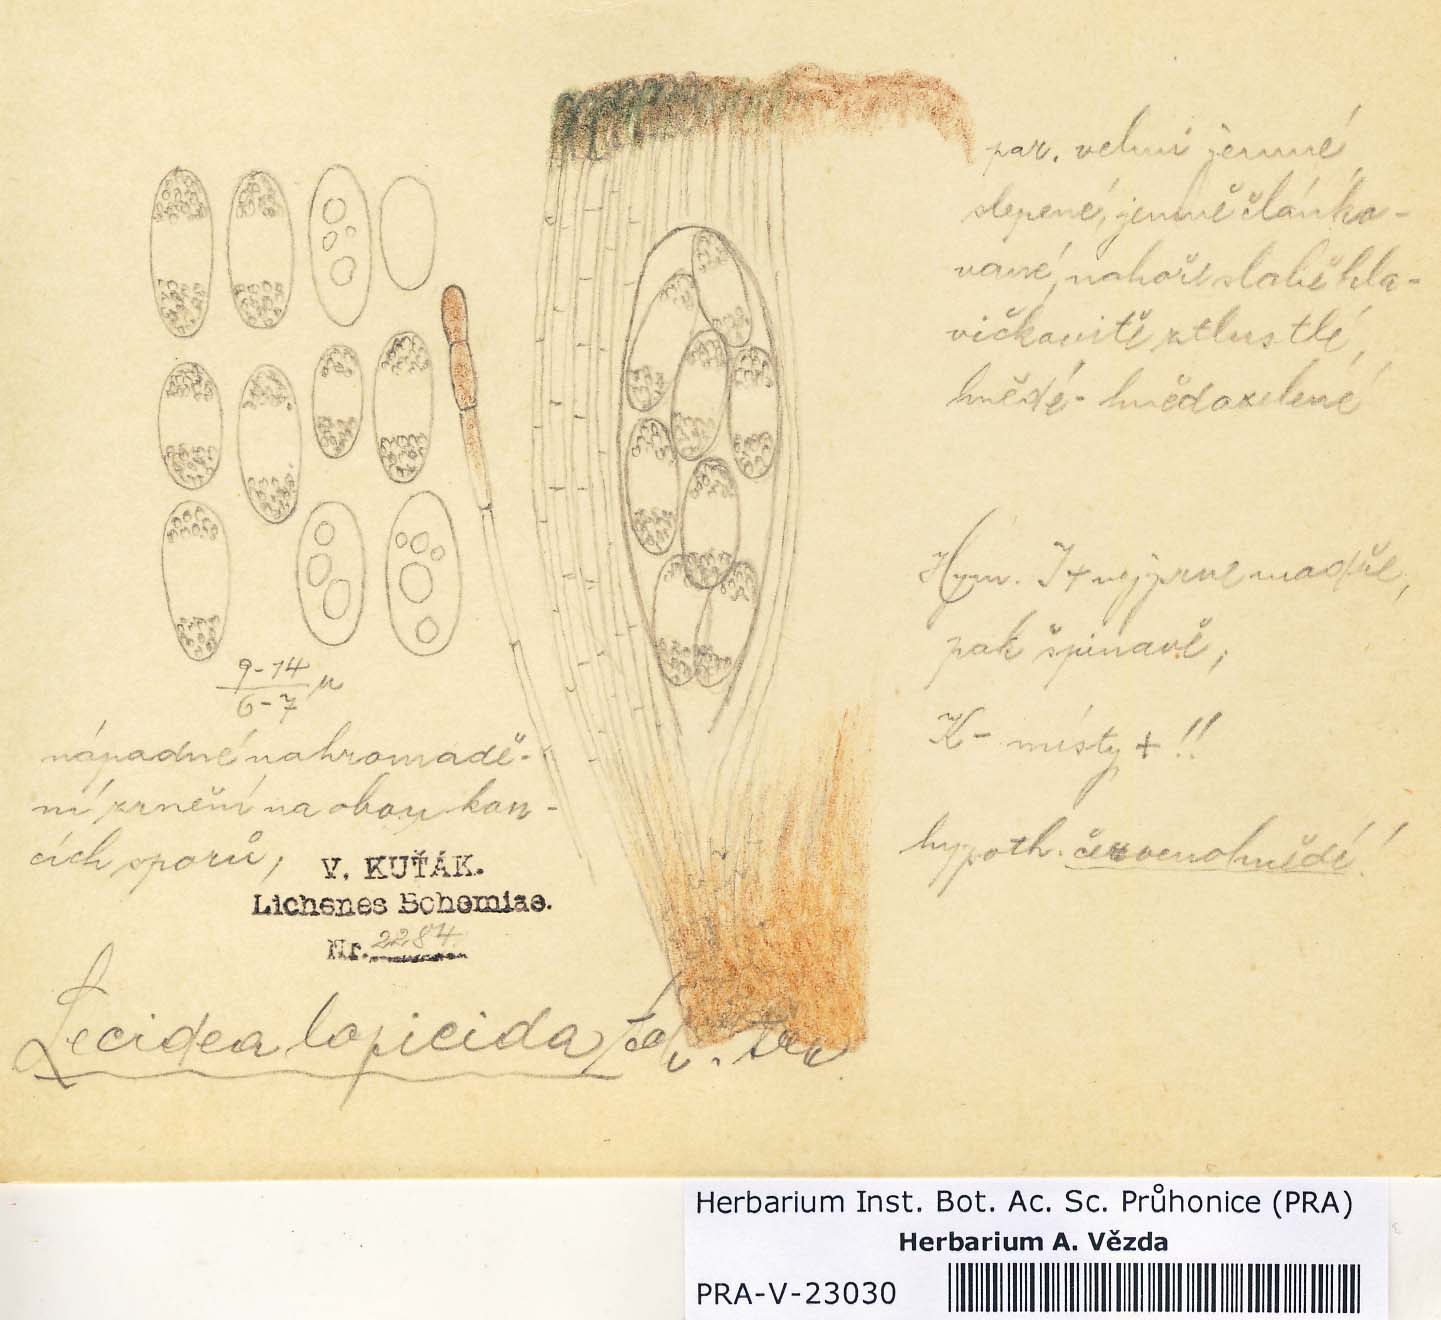 par. velmi jemné,
slepené, jemně článko-
vané, nahoře slabě hla-
vičkovitě ztlustlé,
hnědé - hnědozelené
Hym. J+ nejprve modře,
pak špinavě;
K- místy + !!
hypoth. červenohnědé!
9-14
6-7 µ
nápadné nahromadě-
ní zrnění na obou kon-
cích sporů;
V. KUŤÁK.
Lichenes Bohemiae.
Nr. 2284
Lecidea lapicida
Herbarium Inst. Bot. Ac. Sc. Průhonice (PRA)
Herbarium A. Vězda
PRA-V-23030